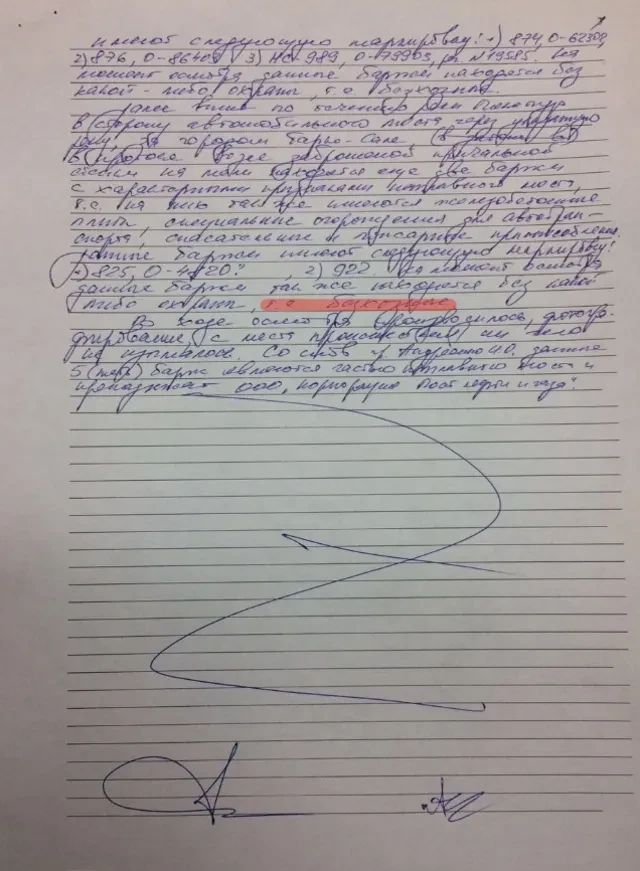 имеют следующую маркировку: 1) 874, 0-62302,
2) 876, 0-86409 3) НС-989, 0-75903, № 19585. На
момент осмотра данные баржи находятся без
какой-либо охраны, т.е. безхозные.
Далее ниже по течению реки
в сторону автомобильного моста через
реку, за городом Тарко-Сале,
в протоке возле заброшенной причальной
стенки на мели находятся еще две баржи
с характерными признаками наплавного моста,
т.е. на них так же имеются железобетонные
плиты, специальные ограждения для автотран-
спорта, спасательные и пожарные приспособления.
Данные баржи имеют следующую маркировку:
1) 825, 0-4820. 2) 922 На момент осмотра
данные баржи так же находятся без какой
либо охраны, т.е. безхозные
В ходе осмотра производилось фотогра-
фирование, с места происшествия ни чего
не изымалось. Со слов гр. данные
5 (пять) барж являются частью наплавного моста и
принадлежат ООО, корпорация Рост нефти и газа".